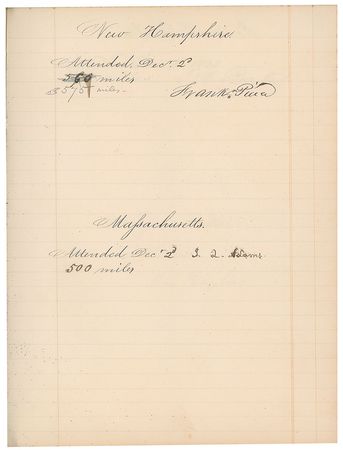 New Hampshire
Attended Dec. 2d
560 miles
575 miles
Frank. Pierce
Massachusetts.
Attended Dec. 2d J. Q. Adams.
500 miles